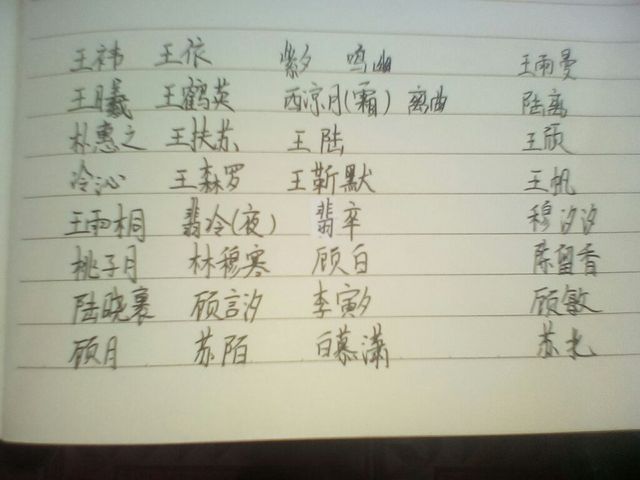 王祎 王依 紫夕 鸣幽 王雨曼
王曦 王鹤英 西凉月(霜) 离曲 陆离
朴惠之 王扶苏 王陆 王颀
冷沁 王森罗 王靳默 王帆
王雨桐 翡冷(夜) 翡卒 穆汐汐
桃子月 林穆寒 顾白 陈留香
陆晓襄 顾言汐 李寅夕 顾敏
顾月 苏陌 白慕潇 苏北